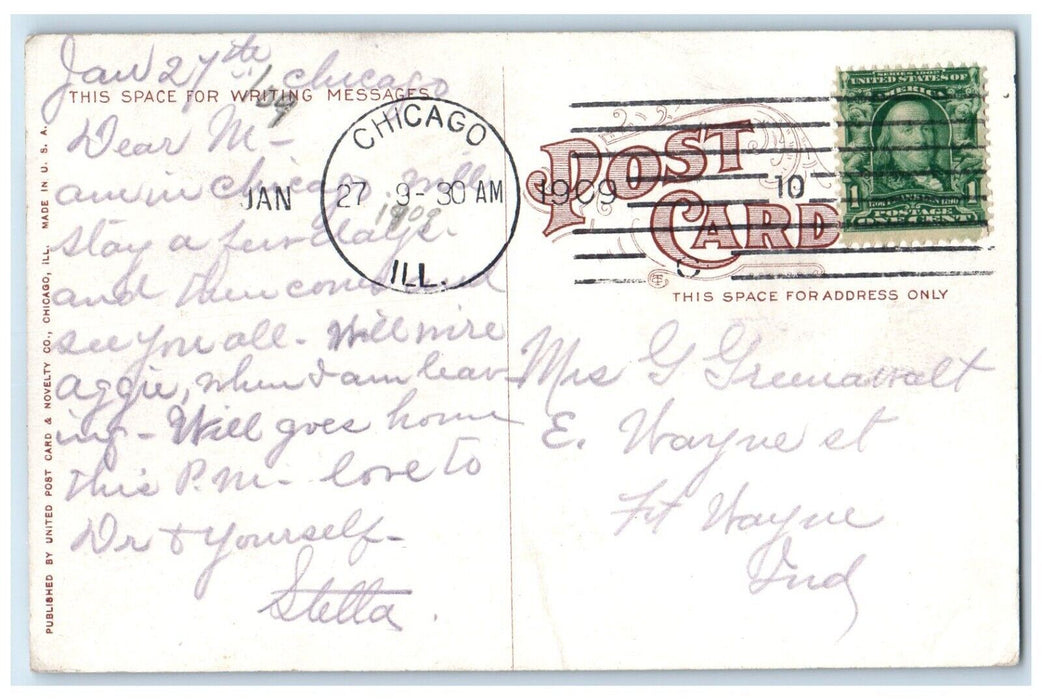 Jan 27th Chicago
1/09
THIS SPACE FOR WRITING MESSAGES
Dear M-
am in Chicago will
stay a few days.
and then come and
see you all - Will wire
aggie, when I am leav-
ing - Will goes home
this P.M - love to
Dr & Yourself -
Stella.
PUBLISHED BY UNITED POST CARD & NOVELTY CO., CHICAGO, ILL. MADE IN U. S. A.
CHICAGO
JAN 27 9-30 AM 1909
1909
ILL.
10
POST
CARD
SERIES 1902
UNITED STATES OF
AMERICA
1 1
POSTAGE
ONE CENT
THIS SPACE FOR ADDRESS ONLY
Mrs G Greenawalt
E. Wayne st
Ft Wayne
Ind